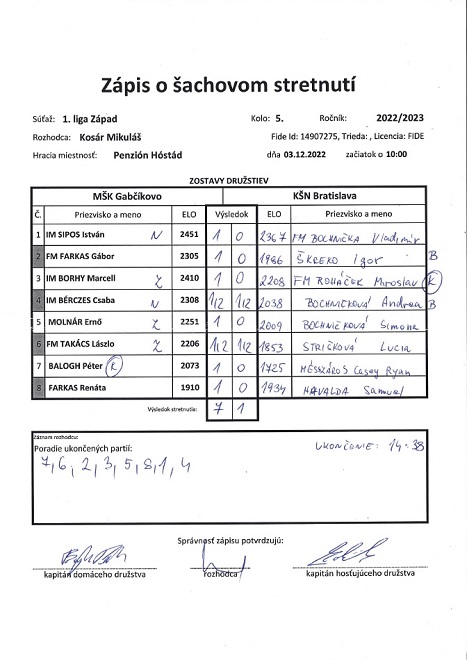 Zápis o šachovom stretnutí
Súťaž: 1. liga Západ Kolo: 5. Ročník: 2022/2023
Rozhodca: Kosár Mikuláš Fide Id: 14907275, Trieda: , Licencia: FIDE
Hracia miestnosť: Penzión Hóstád dňa 03.12.2022 začiatok o 10:00
ZOSTAVY DRUŽSTIEV
MŠK Gabčíkovo KŠN Bratislava
Č. Priezvisko a meno ELO Výsledok ELO Priezvisko a meno
1 IM SIPOS István N 2451 1 0 2367 FM BOCHNIČKA Vladimír
2 FM FARKAS Gábor 2305 1 0 1986 ŠKREKO Igor B
3 IM BORHY Marcell Z 2410 1 0 2208 FM ROHÁČEK Miroslav K
4 IM BÉRCZES Csaba N 2308 1/2 1/2 2038 BOCHNIČKOVÁ Andrea B
5 MOLNÁR Ernő Z 2251 1 0 2009 BOCHNIČKOVÁ Simona
6 FM TAKÁCS László Z 2206 1/2 1/2 1853 STRIČKOVÁ Lucia
7 BALOGH Péter K 2073 1 0 1725 MÉSZÁROS Casey Ryan
8 FARKAS Renáta 1910 1 0 1934 HAVALDA Samuel
Výsledok stretnutia: 7 1
Záznam rozhodcu:
Poradie ukončených partií: UKONČENIE: 14:38
7, 6, 2, 3, 5, 8, 1, 4
Správnosť zápisu potvrdzujú:
kapitán domáceho družstva rozhodca kapitán hosťujúceho družstva